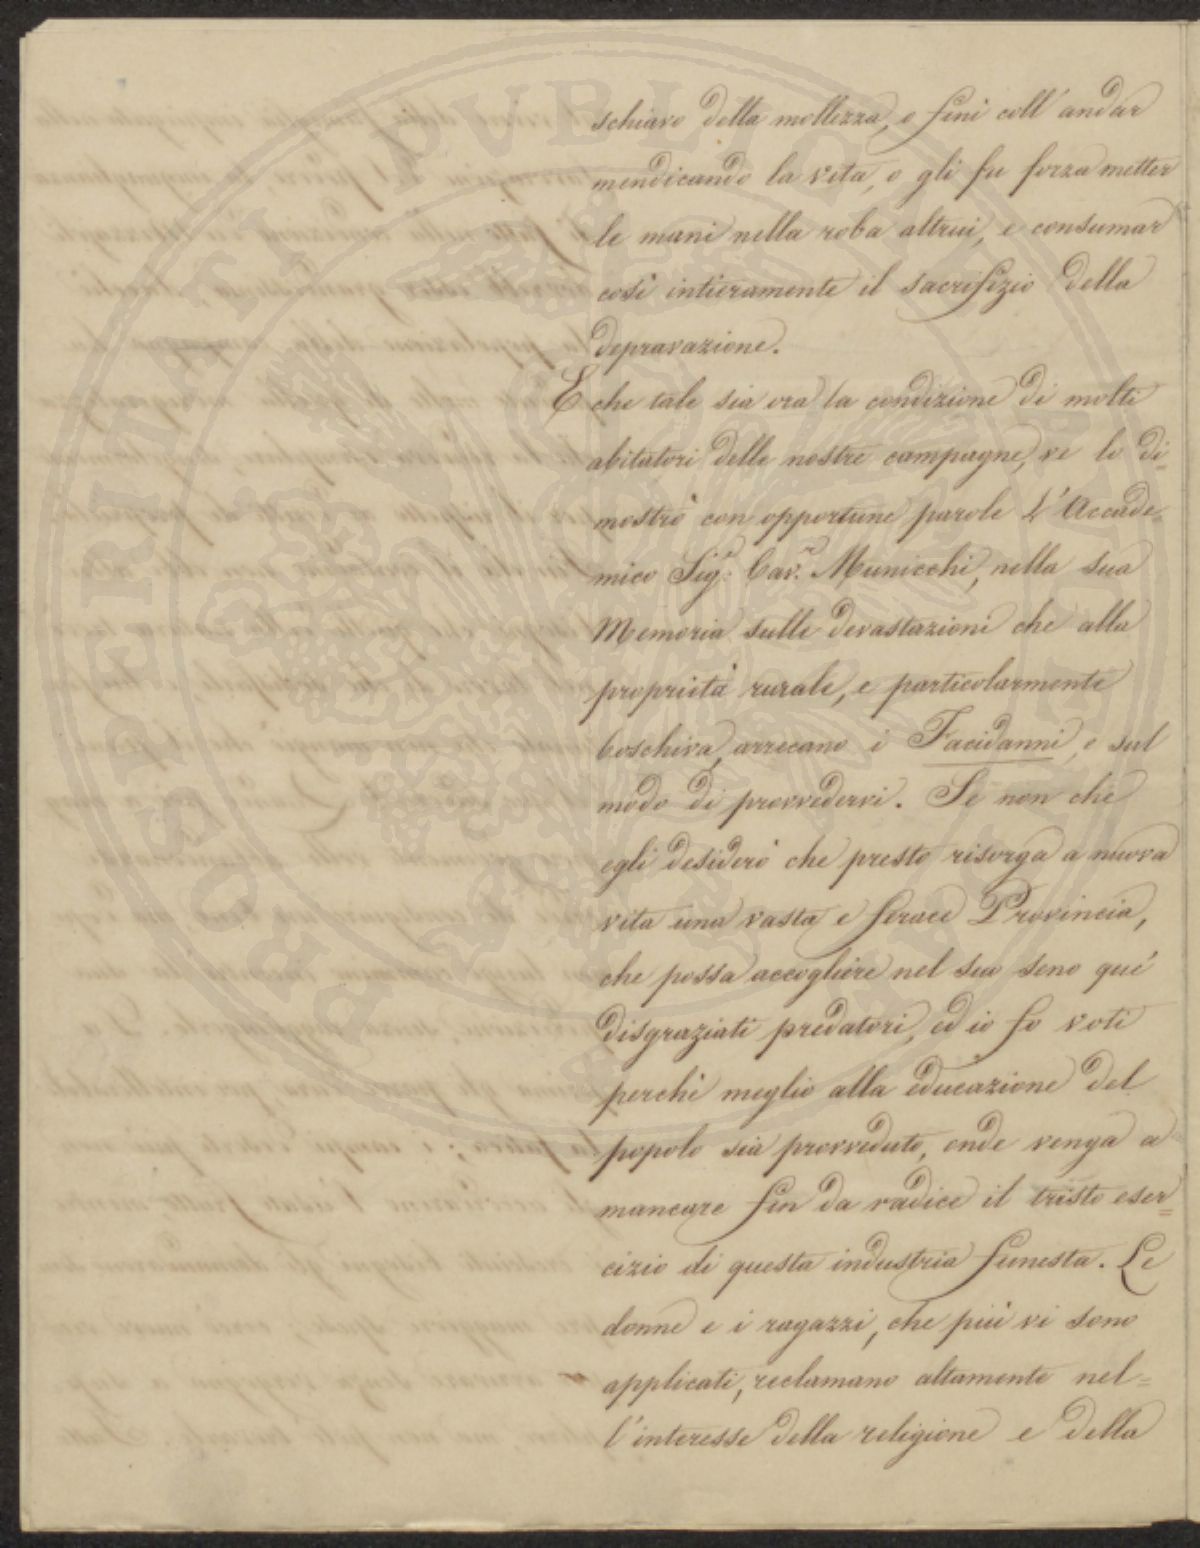 schiavo della mollezza, e finì coll'andar
mendicando la vita, o gli fu forza metter
le mani nella roba altrui, e consumar
così intieramente il sacrifizio della
depravazione.
E che tale sia ora la condizione di molti
abitatori delle nostre campagne, ve lo di=
mostrò con opportune parole l'Accade=
mico Sig.r Cav.re Municchi, nella sua
Memoria sulle devastazioni che alla
proprietà rurale, e particolarmente
boschiva, arrecano i Facidanni, e sul
modo di provvedervi. Se non che
egli desiderò che presto risorga a nuova
vita una vasta e ferace Provincia,
che possa accogliere nel suo seno que'
disgraziati predatori, ed io fo voti
perchè meglio alla educazione del
popolo sia provveduto, onde venga a
mancare fin da radice il tristo eser=
cizio di questa industria funesta. Le
donne e i ragazzi, che più vi sono
applicati, reclamano altamente nel=
l'interesse della religione e della
PROSPERITATI PVBLICAE